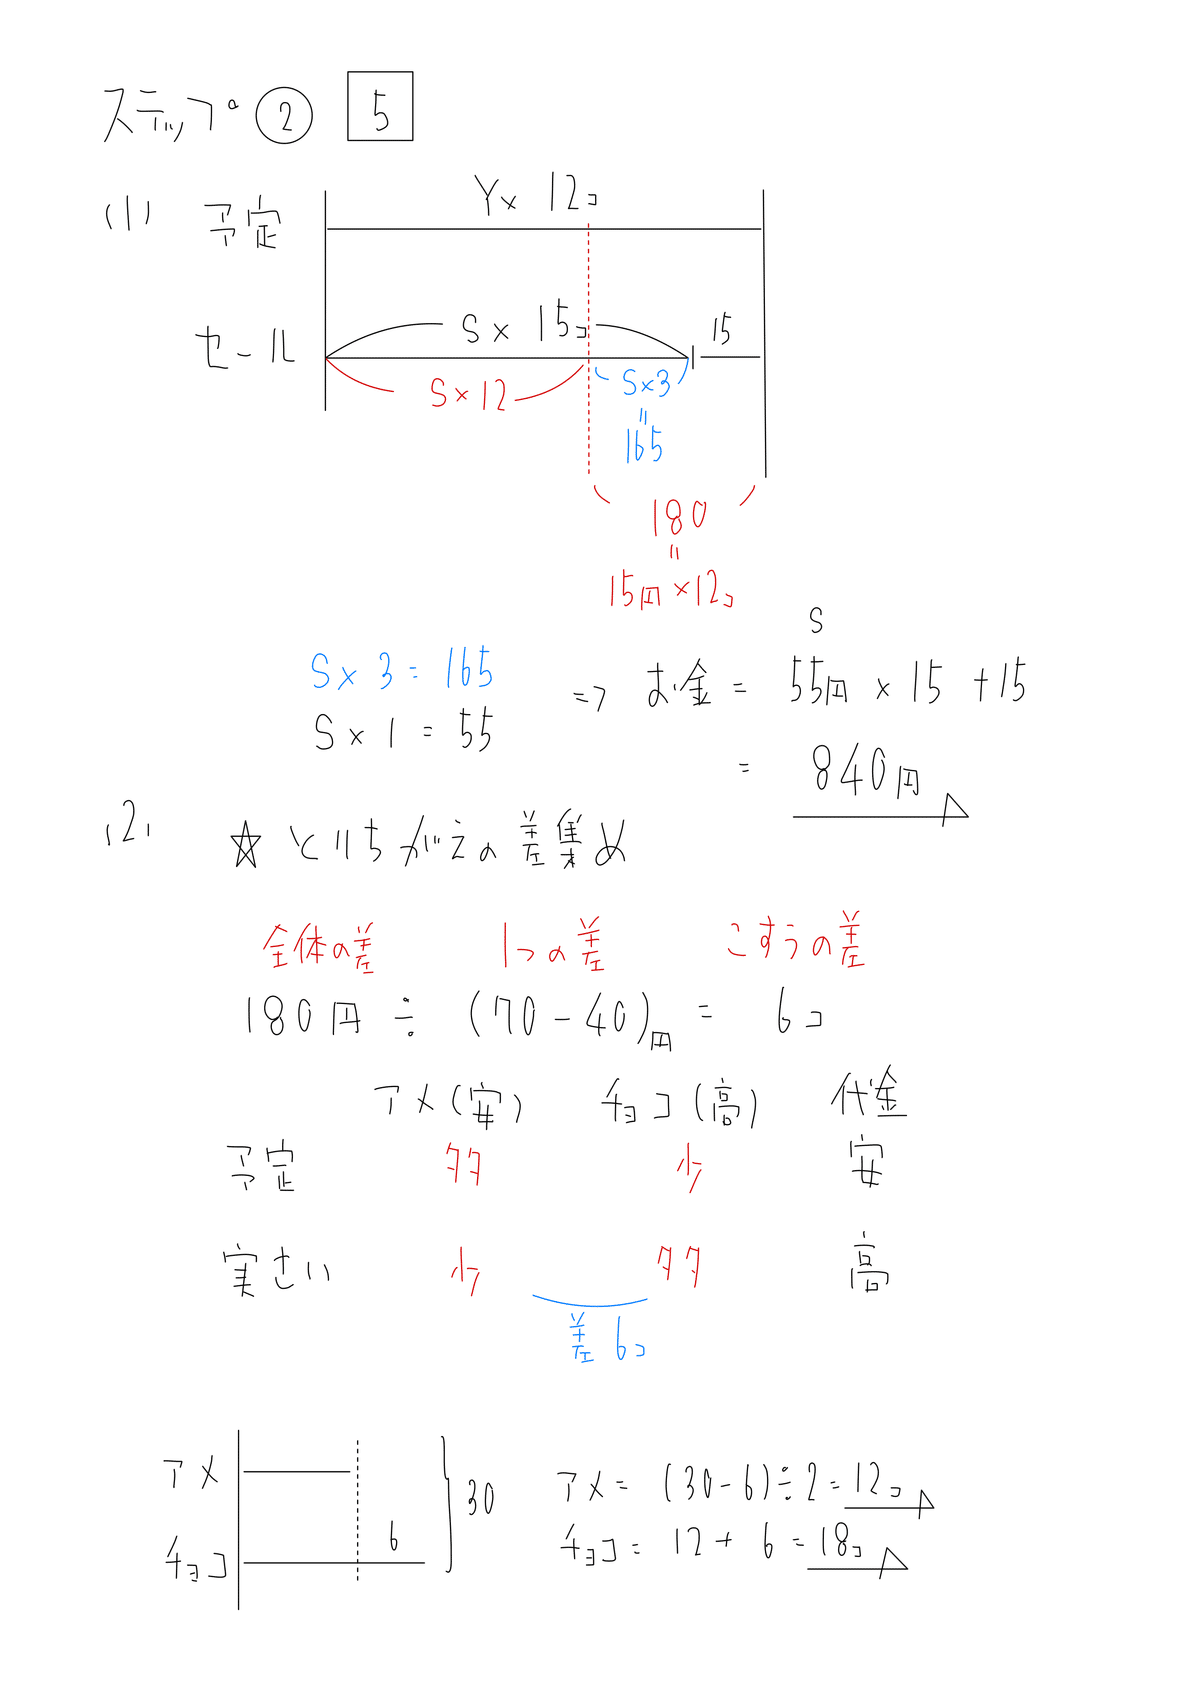 ステップ ② 5
(1) 予定 Y× 12コ
セール S× 15コ 15
S×12 S×3
=
165
180
=
15円×12コ
S
S× 3 = 165
S× 1 = 55
=> お金 = 55円 × 15 +15
= 840円
(2) ☆ とりちがえの差集め
全体の差 1つの差 こすうの差
180円 ÷ (70-40)円 = 6コ
アメ(安) チョコ(高) 代金
予定 多 少 安
実さい 少 多 高
差 6コ
アメ 30 アメ= (30-6)÷2=12コ
チョコ 6 チョコ= 12+ 6 =18コ